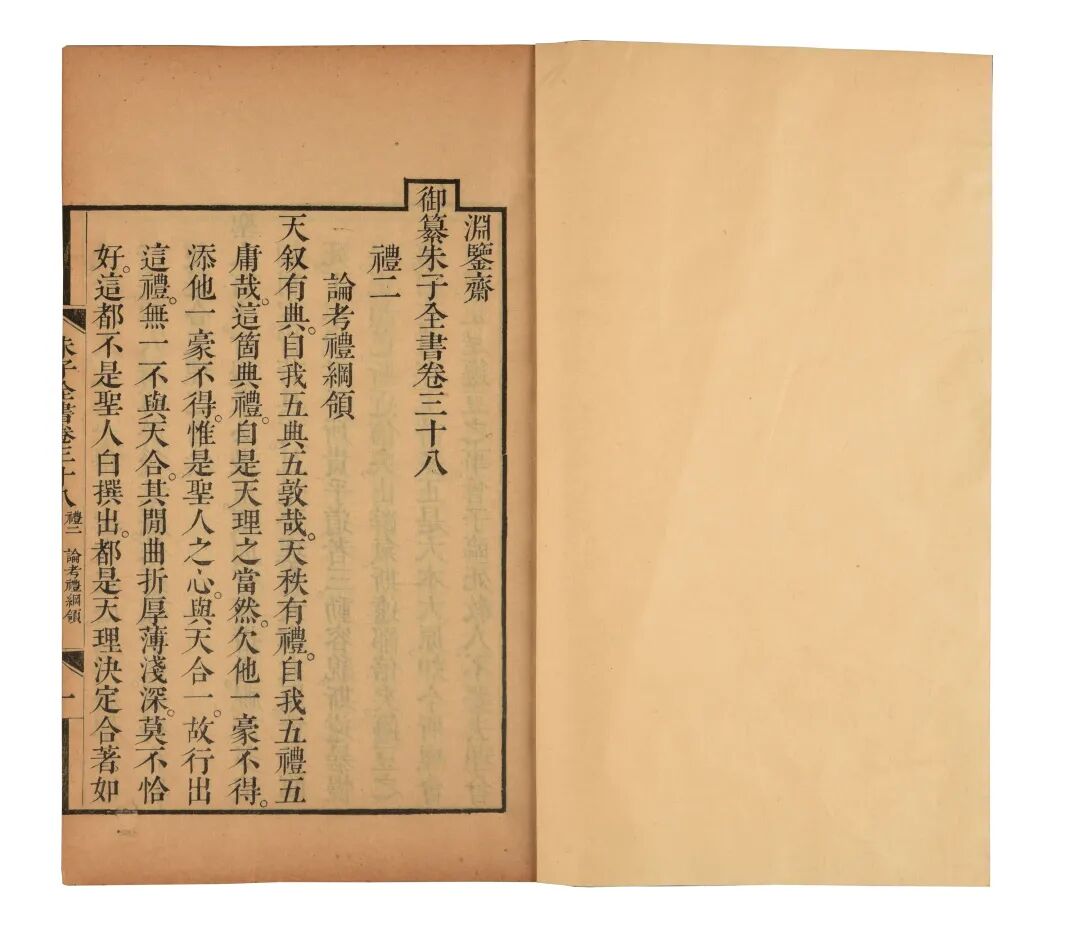 淵鑒齋
御纂朱子全書卷三十八
禮二
論考禮綱領
天叙有典。自我五典五敦哉。天秩有禮。自我五禮五
庸哉。這箇典禮。自是天理之當然。欠他一豪不得。
添他一豪不得。惟是聖人之心。與天合一。故行出
這禮。無一不與天合。其閒曲折厚薄淺深。莫不恰
好。這都不是聖人白撰出。都是天理決定合著如
朱子全書卷三十八 禮二 論考禮綱領 一